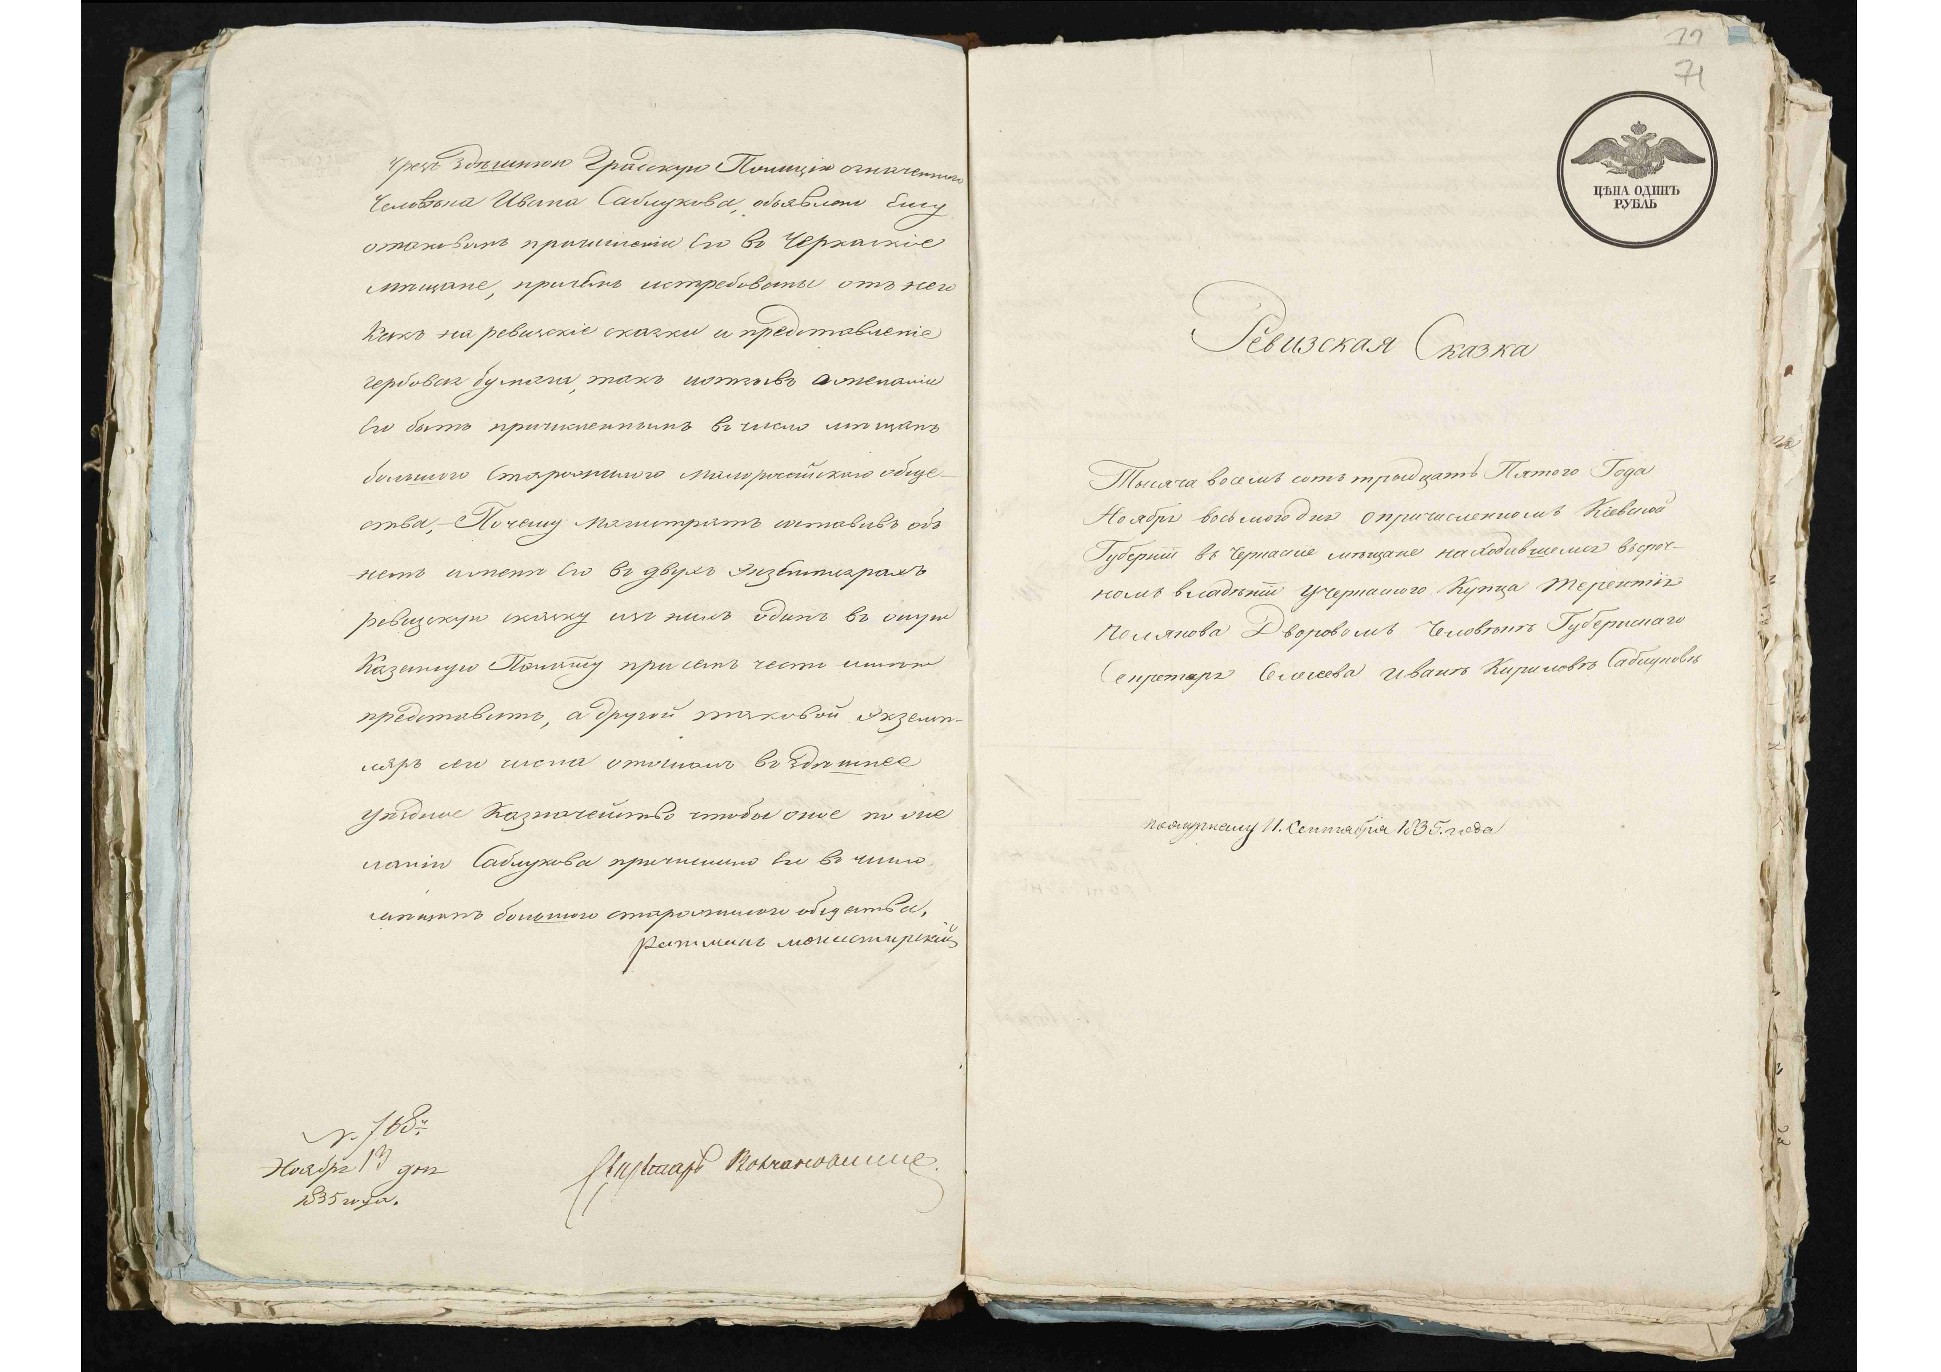 чрезъ Здѣшнюю Градскую Полицію означенного
Человѣка Ивана Саблукова, объявлено ему
отаковомъ причисленіи его въ Черкаскіе
мѣщане, причемъ истребованы отъ него
Какъ на ревизскіе сказки и представленіе
гербовая бумага, такъ иотзывъ ожеланіи
его быть причисленнымъ въ число мѣщанъ
большого Старожилого малороссійского обще-
ства,- Почему Магистратъ составивъ объ
немъ имянно его въ двухъ Экземплярахъ
ревизскую сказку изъ нихъ одинъ въ оную
Казенную Палату при семъ честь имѣетъ
представить, а другой таковой Экземп-
ляръ сего числа отосланъ въ Здѣшнее
уѣздное Казначейство чтобы оное по же
ланію Саблукова причислило его въ число
мѣщанъ большого старожилого общества.
Ратманъ Монастирскій
Секретарь
№ 768й
Ноября 13 дня
1835 года.
71
ЦѢНА ОДИНЪ
РУБЛЬ
Ревизская Сказка
Тысяча восемь сотъ тридцать Пятого Года
Ноября восьмого дня опричисленномъ Кіевской
Губерніи въ Черкаскіе мѣщане находившемся въсроч-
номъ владѣніи учеркаского Купца Терентія
Полякова Дворовомъ Человѣкѣ Губернскаго
Секретаря Елисеева Иванѣ Кириловѣ Саблуковѣ
поокружному 11. Сентября 1835. года